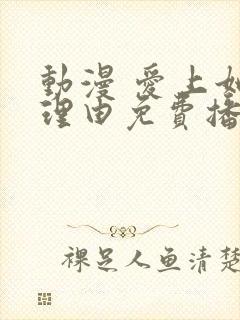 動漫 愛上她
理由免費播
裸足人鱼清楚